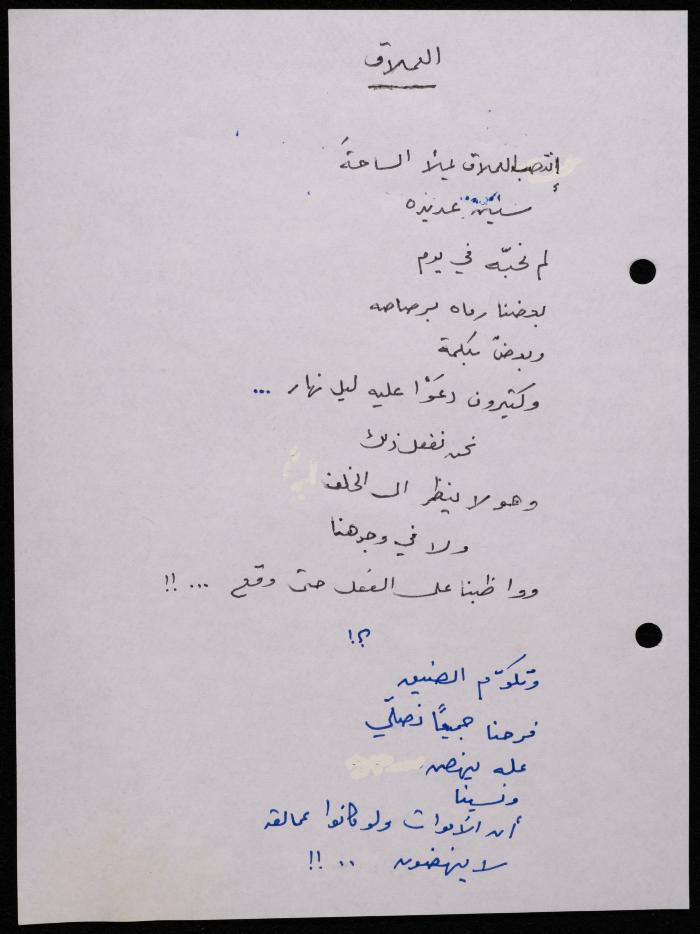 العملاق
إنتصب العملاق يملأ الساحة
سنين عديده
لم نحبّه في يوم
بعضنا رماه برصاصه
وبعضٌ بكلمة
وكثيرون دعَوْا عليه ليل نهار ...
نحن نفعل ذلك
وهو لا ينظر الى الخلف
ولا في وجوهنا
وواظبنا على الفعل حتى وقع ... !!
؟!
وتكوّم الضيق
فرحنا جميعًا نصلّي
عله ينهض
ونسينا
أن الأموات ولو كانوا عمالقه
لا ينهضون .. !!